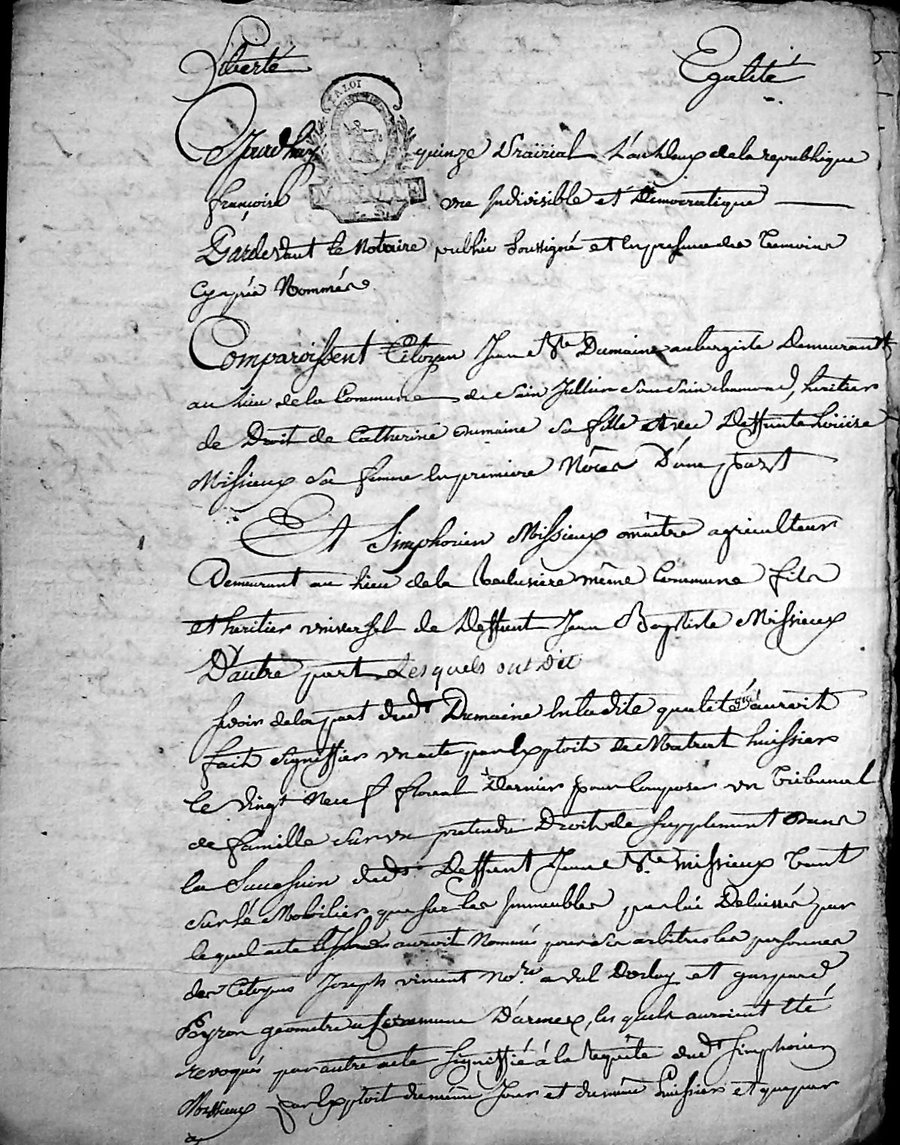 Liberté Egalité
LA LOI
Aujourdhuy quinze Prairial L'an deux de la republique
francoise une Indivisible et Democratique
MINUTE
Pardevant le Notaire public soussigné et en presence des Temoins
Cy apres Nommés
Comparoissent Citoyen Jean Bte Dumaine aubergiste Demeurant
au lieu de la Commune de Sain Jullien heritier
de Droit de Catherine Dumaine sa fille et de Deffunte Louise
Missieux sa femme en premiere Nôces D'une part
Et Simphorien Missieux maitre agriculteur
Demeurant au lieu de la même Commune fils
et heritier universel de Deffunt Jean Baptiste Missieux
D'autre part Lesquels ont Dit
savoir de la part dudt Dumaine en ladite qualité auroit
fait signiffier un acte par Exploit de huissier
le vingt Neuf floreal Dernier pour Composer un Tribunal
de famille sur un pretendu Droit de supplement Dans
la Succession dudt Deffunt Jean Bte missieux Tant
sur lé Mobilier que sur les Immeubles par lui Delaissés par
lequel acte auroit Nommé pour ses arbitres les personnes
des Citoyens Joseph vincent Nore a val Dorlay et gaspard
Peyron géometre Commune D'armes, lesquels auroient Eté
revoqués par autre acte signiffié à la requête dudt Simphorien
Missieux par Exploit du même Jour et du même huissier et que par